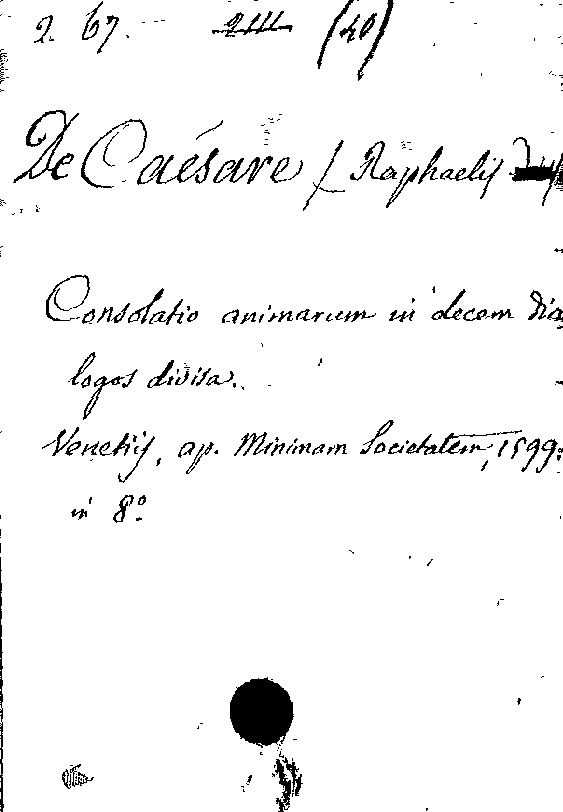 2. 67. 2111 (40)
De Caésare (Raphaelis
Consolatio animarum in decem dia
logos divisa.
Venetijs, ap. Minimam Societatem, 1599.
in 8º